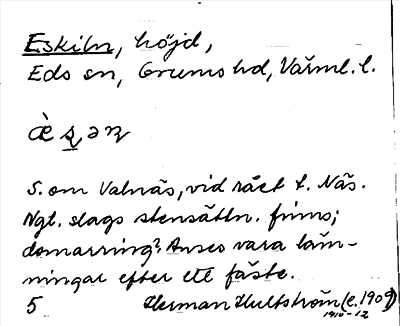 Eskiln, höjd,
Eds sn, Grums hd, Värml. l.
S. om Valnäs, vid rået t. Näs.
Ngt. slags stensättn. finns;
domarring? Anses vara läm-
ningar efter ett fäste.
5 Herman Hultström (e. 1909)
1910-12